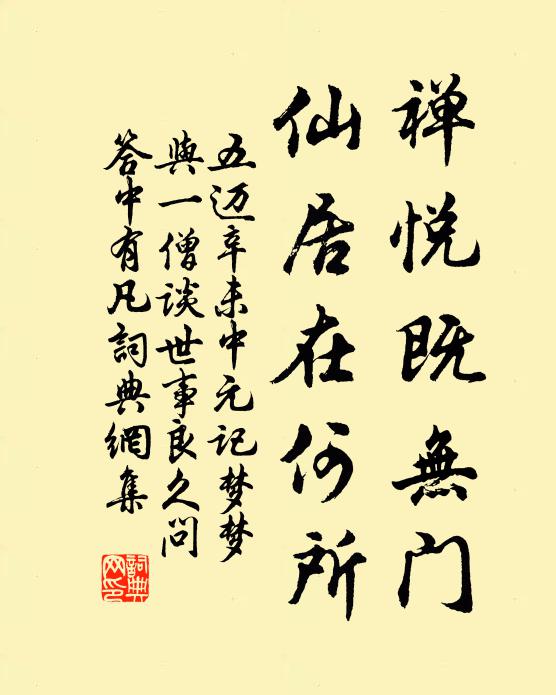 禅悦既無門
仙居在何所
五迈辛未中元记梦梦
與一僧谈世事良久问
答中有凡詞典網集
詞典
网印